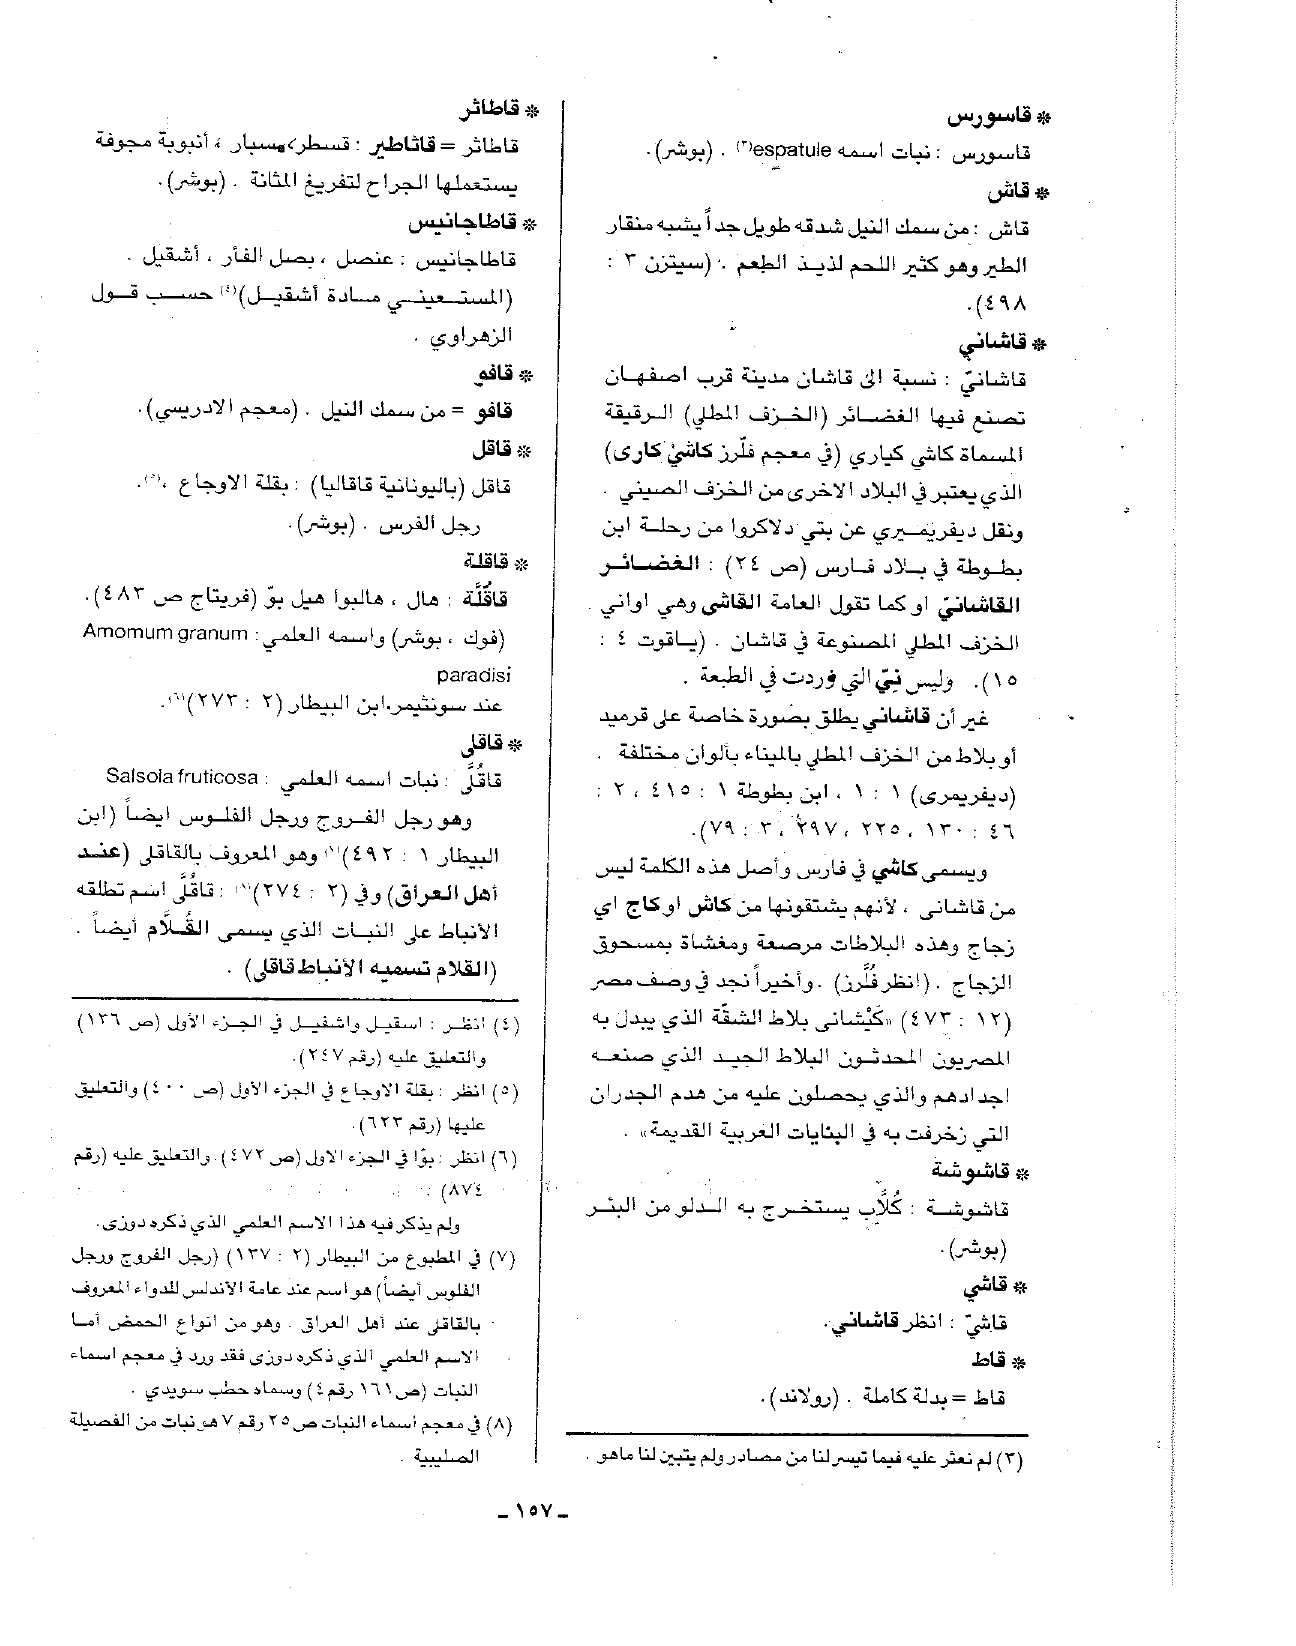 * قاسورس
قاسورس : نبات اسمه espatule(٣) . (بوشر).
* قاش
قاش : من سمك النيل شدقه طويل جداً يشبه منقار
الطير وهو كثير اللحم لذيذ الطعم . (سيتزن ٣ :
٤٩٨).
* قاشاني
قاشانيّ : نسبة الى قاشان مدينة قرب اصفهان
تصنع فيها الغضائر (الخزف المطلي) الرقيقة
المسماة كاشي كياري (في معجم فلّرز كاشئ كارى)
الذي يعتبر في البلاد الاخرى من الخزف الصيني .
ونقل ديفريميري عن بتي دلاكروا من رحلة ابن
بطوطة في بلاد فارس (ص ٢٤) : الغضائر
القاشانيّ او كما تقول العامة القاشي وهي اواني
الخزف المطلي المصنوعة في قاشان . (ياقوت ٤ :
١٥). وليس نيّ التي وردت في الطبعة .
غير أن قاشاني يطلق بصورة خاصة على قرميد
أو بلاط من الخزف المطلي بالميناء بألوان مختلفة .
(ديفريمرى) ١ : ١ ، ابن بطوطة ١ : ٤١٥ ، ٢ :
٤٦ : ١٣٠ ، ٢٢٥ ، ٢٩٧ ، ٣ : ٧٩).
ويسمى كاشي في فارس وأصل هذه الكلمة ليس
من قاشاني ، لأنهم يشتقونها من كاش او كاج اي
زجاج وهذه البلاطات مرصعة ومغشاة بمسحوق
الزجاج . (انظر فُلَّرز) . وأخيراً نجد في وصف مصر
(١٢ : ٤٧٣) «كَيْشاني بلاط الشقّة الذي يبدل به
المصريون المحدثون البلاط الجيد الذي صنعه
اجدادهم والذي يحصلون عليه من هدم الجدران
التي زخرفت به في البنايات العربية القديمة» .
* قاشوشة
قاشوشة : كُلاَّب يستخرج به الدلو من البئر
(بوشر).
* قاشي
قاشيّ : انظر قاشاني.
* قاط
قاط = بدلة كاملة . (رولاند).
(٣) لم نعثر عليه فيما تيسر لنا من مصادر ولم يتبين لنا ماهو .
* قاطائر
قاطائر = قاثاطير : قسطر، مسبار ، أنبوبة مجوفة
يستعملها الجراح لتفريغ المثانة . (بوشر).
* قاطاجانيس
قاطاجانيس : عنصل ، بصل الفأر ، أشقيل .
(المستعيني مادة أشقيل)(٤) حسب قول
الزهراوي .
* قافو
قافو = من سمك النيل . (معجم الادريسي).
* قاقل
قاقل (باليونانية قاقاليا) : بقلة الاوجاع ،(٥).
رجل الفرس . (بوشر).
* قاقلة
قاقُلَّة : هال ، هالبوا هيل بوّ (فريتاج ص ٤٨٣).
(فوك ، بوشر) واسمه العلمي : Amomum granum
paradisi
عند سونثيمر.ابن البيطار (٢ : ٢٧٣)(٦).
* قاقلى
قاقُلَّى : نبات اسمه العلمي : Salsola fruticosa
وهو رجل الفروج ورجل الفلوس ايضاً (ابن
البيطار ١ : ٤٩٢)(٧) وهو المعروف بالقاقلى (عند
أهل العراق) وفي (٢ : ٢٧٤)(٨) : قاقُلَّى اسم تطلقه
الأنباط على النبات الذي يسمى القُلاَّم أيضاً .
(القلام تسميه الأنباط قاقلى) .
(٤) انظر : اسقيل واشقيل في الجزء الأول (ص ١٣٦)
والتعليق عليه (رقم ٢٤٧).
(٥) انظر : بقلة الاوجاع في الجزء الأول (ص ٤٠٠) والتعليق
عليها (رقم ٦٢٣).
(٦) انظر : بوّا في الجزء الاول (ص ٤٧٢) . والتعليق عليه (رقم
٨٧٤)
ولم يذكر فيه هذا الاسم العلمي الذي ذكره دوزي.
(٧) في المطبوع من البيطار (٢ : ١٣٧) (رجل الفروج ورجل
الفلوس أيضاً) هو اسم عند عامة الأندلس للدواء المعروف
بالقاقلى عند أهل العراق . وهو من انواع الحمض أما
الاسم العلمي الذي ذكره دوزي فقد ورد في معجم اسماء
النبات (ص ١٦١ رقم ٤) وسماه حطب سويدي .
(٨) في معجم أسماء النبات ص ٢٥ رقم ٧ هو نبات من الفصيلة
الصليبية .
ـ ١٥٧ ـ